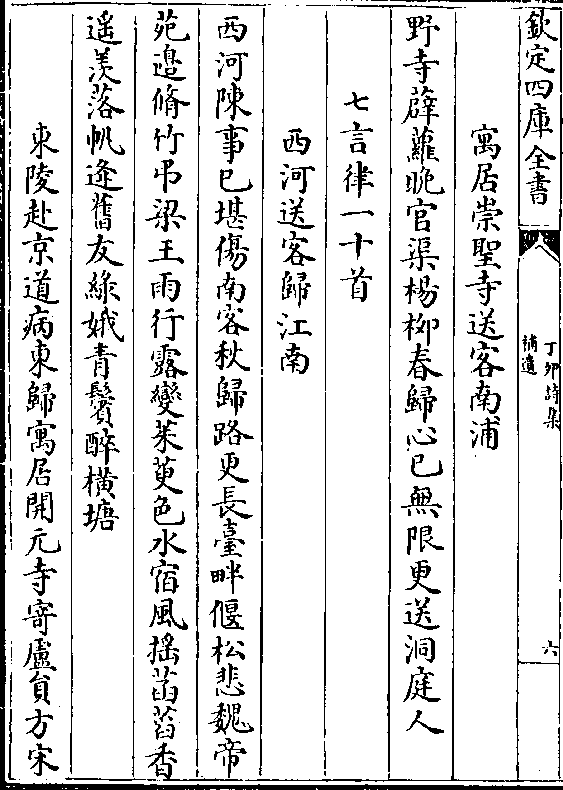 欽定四庫全書
丁卯詩集
補遺
六
寓居崇聖寺送客南浦
野寺薜蘿晚官渠楊柳春歸心已無限更送洞庭人
七言律一十首
西河送客歸江南
西河陳事已堪傷南客秋歸路更長臺畔偃松悲魏帝
苑邉脩竹弔梁王雨行露變茱萸色水宿風揺菡萏香
遥羡落帆逢舊友緑娥青鬢醉横塘
東陵赴京道病東歸寓居開元寺寄盧貟方宋